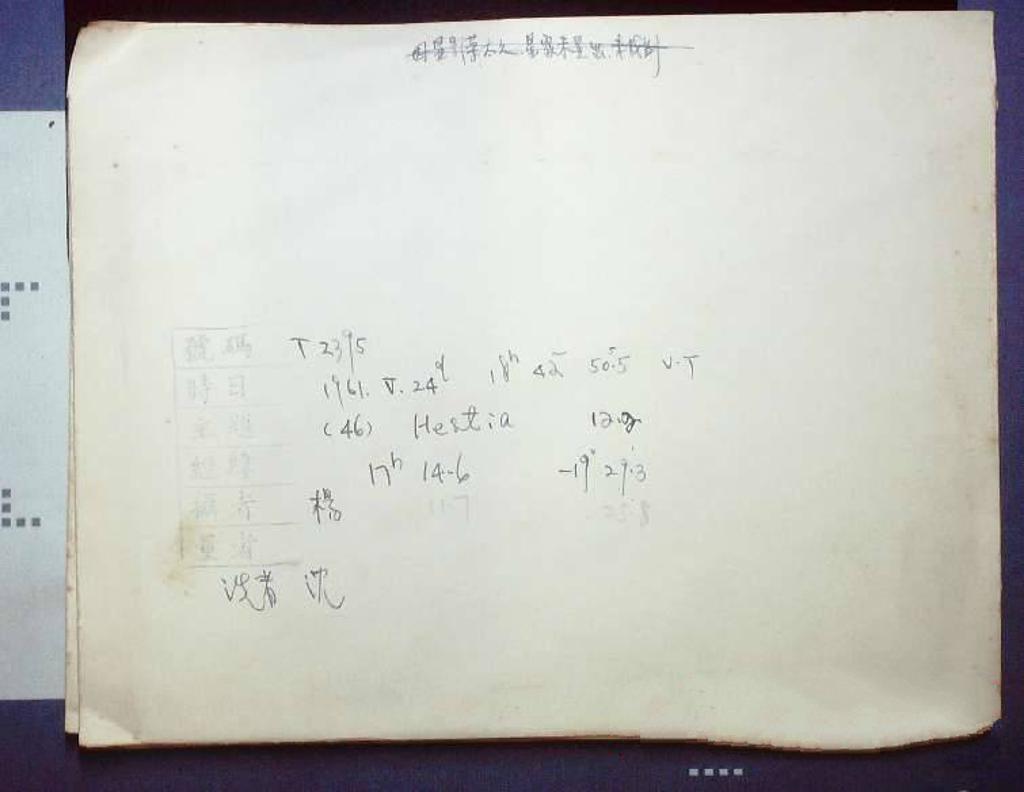 號碼 T 2395
時日 1961. V. 24ᵈ 18ʰ 42ᵐ 50ˢ.5 U.T
主題 (46) Hestia 12.2
經緯 17ʰ 14.6 -19° 29'.3
攝者 楊 11.7 25.8
量者
洗者 沈